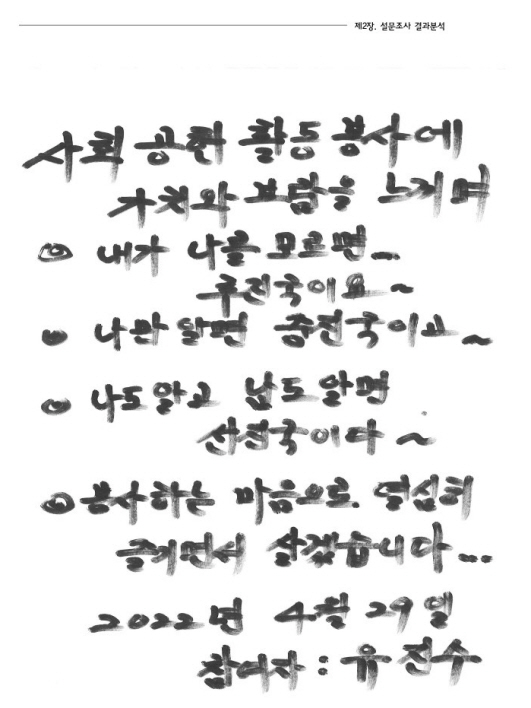 제2장. 설문조사 결과분석
사회 공헌 활동 봉사에
가치와 보람을 느끼며
◎ 내가 나를 모르면..
후진국이요~
◎ 나만 알면 중진국이고~
◎ 나도알고 남도알면
선진국이다~
◎ 봉사하는 마음으로 열심히
즐기면서 살겠습니다...
2022년 4월 29일
참여자 : 유진수